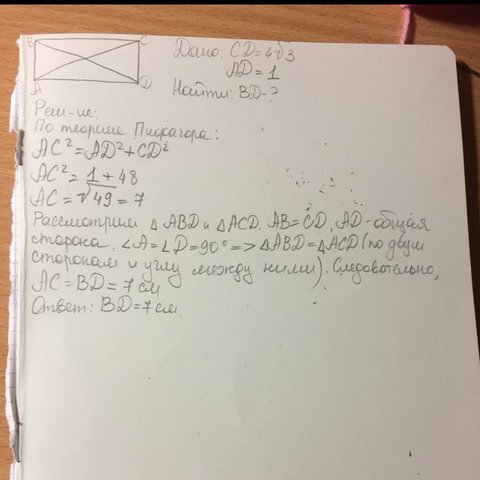 B C
A D
Дано: CD = 4√3
AD = 1
Найти: BD - ?
Реш-ие:
По теореме Пифагора:
AC² = AD² + CD²
AC² = 1 + 48
AC = √49 = 7
Рассмотрим △ ABD и △ ACD. AB = CD, AD - общая
сторона, ∠A = ∠D = 90° => △ABD = △ACD (по двум
сторонам и углу между ними). Следовательно,
AC = BD = 7 см
Ответ: BD = 7 см.